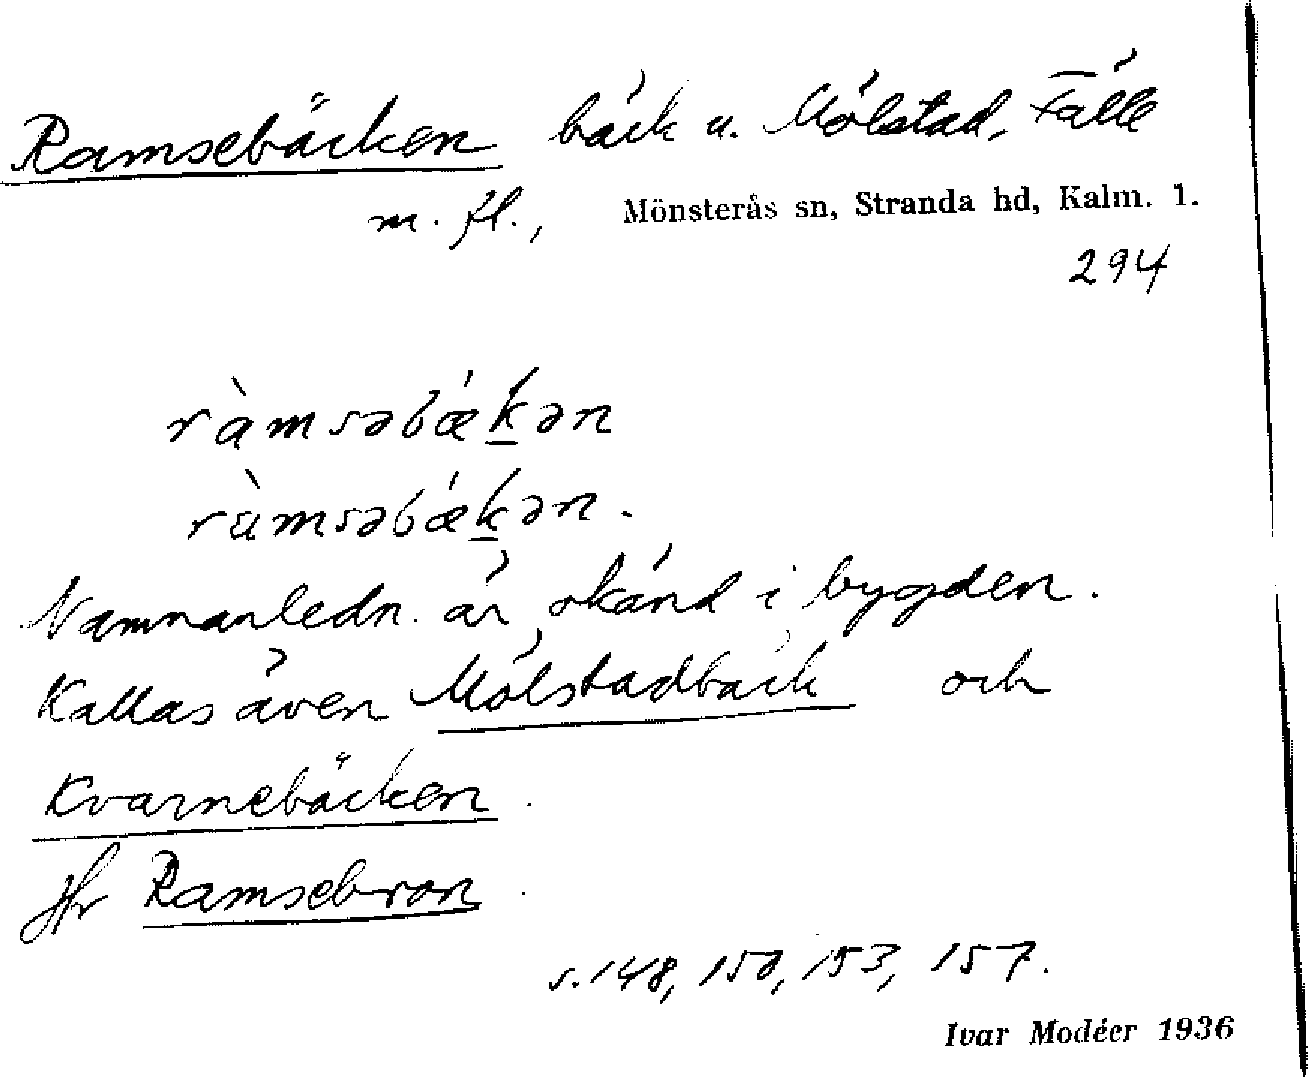 Ramsebäcken bäck u. Mölstad, Fälle
m. fl., Mönsterås sn, Stranda hd, Kalm. l.
294
ràmsəbǽk̲ən
ràmsəbǽk̲ən.
Namnanledn. är okänd i bygden.
Kallas även Mölstadbäck och
Kvarnebäcken.
Jfr Ramsebron.
s. 148, 150, 153, 157.
Ivar Modéer 1936